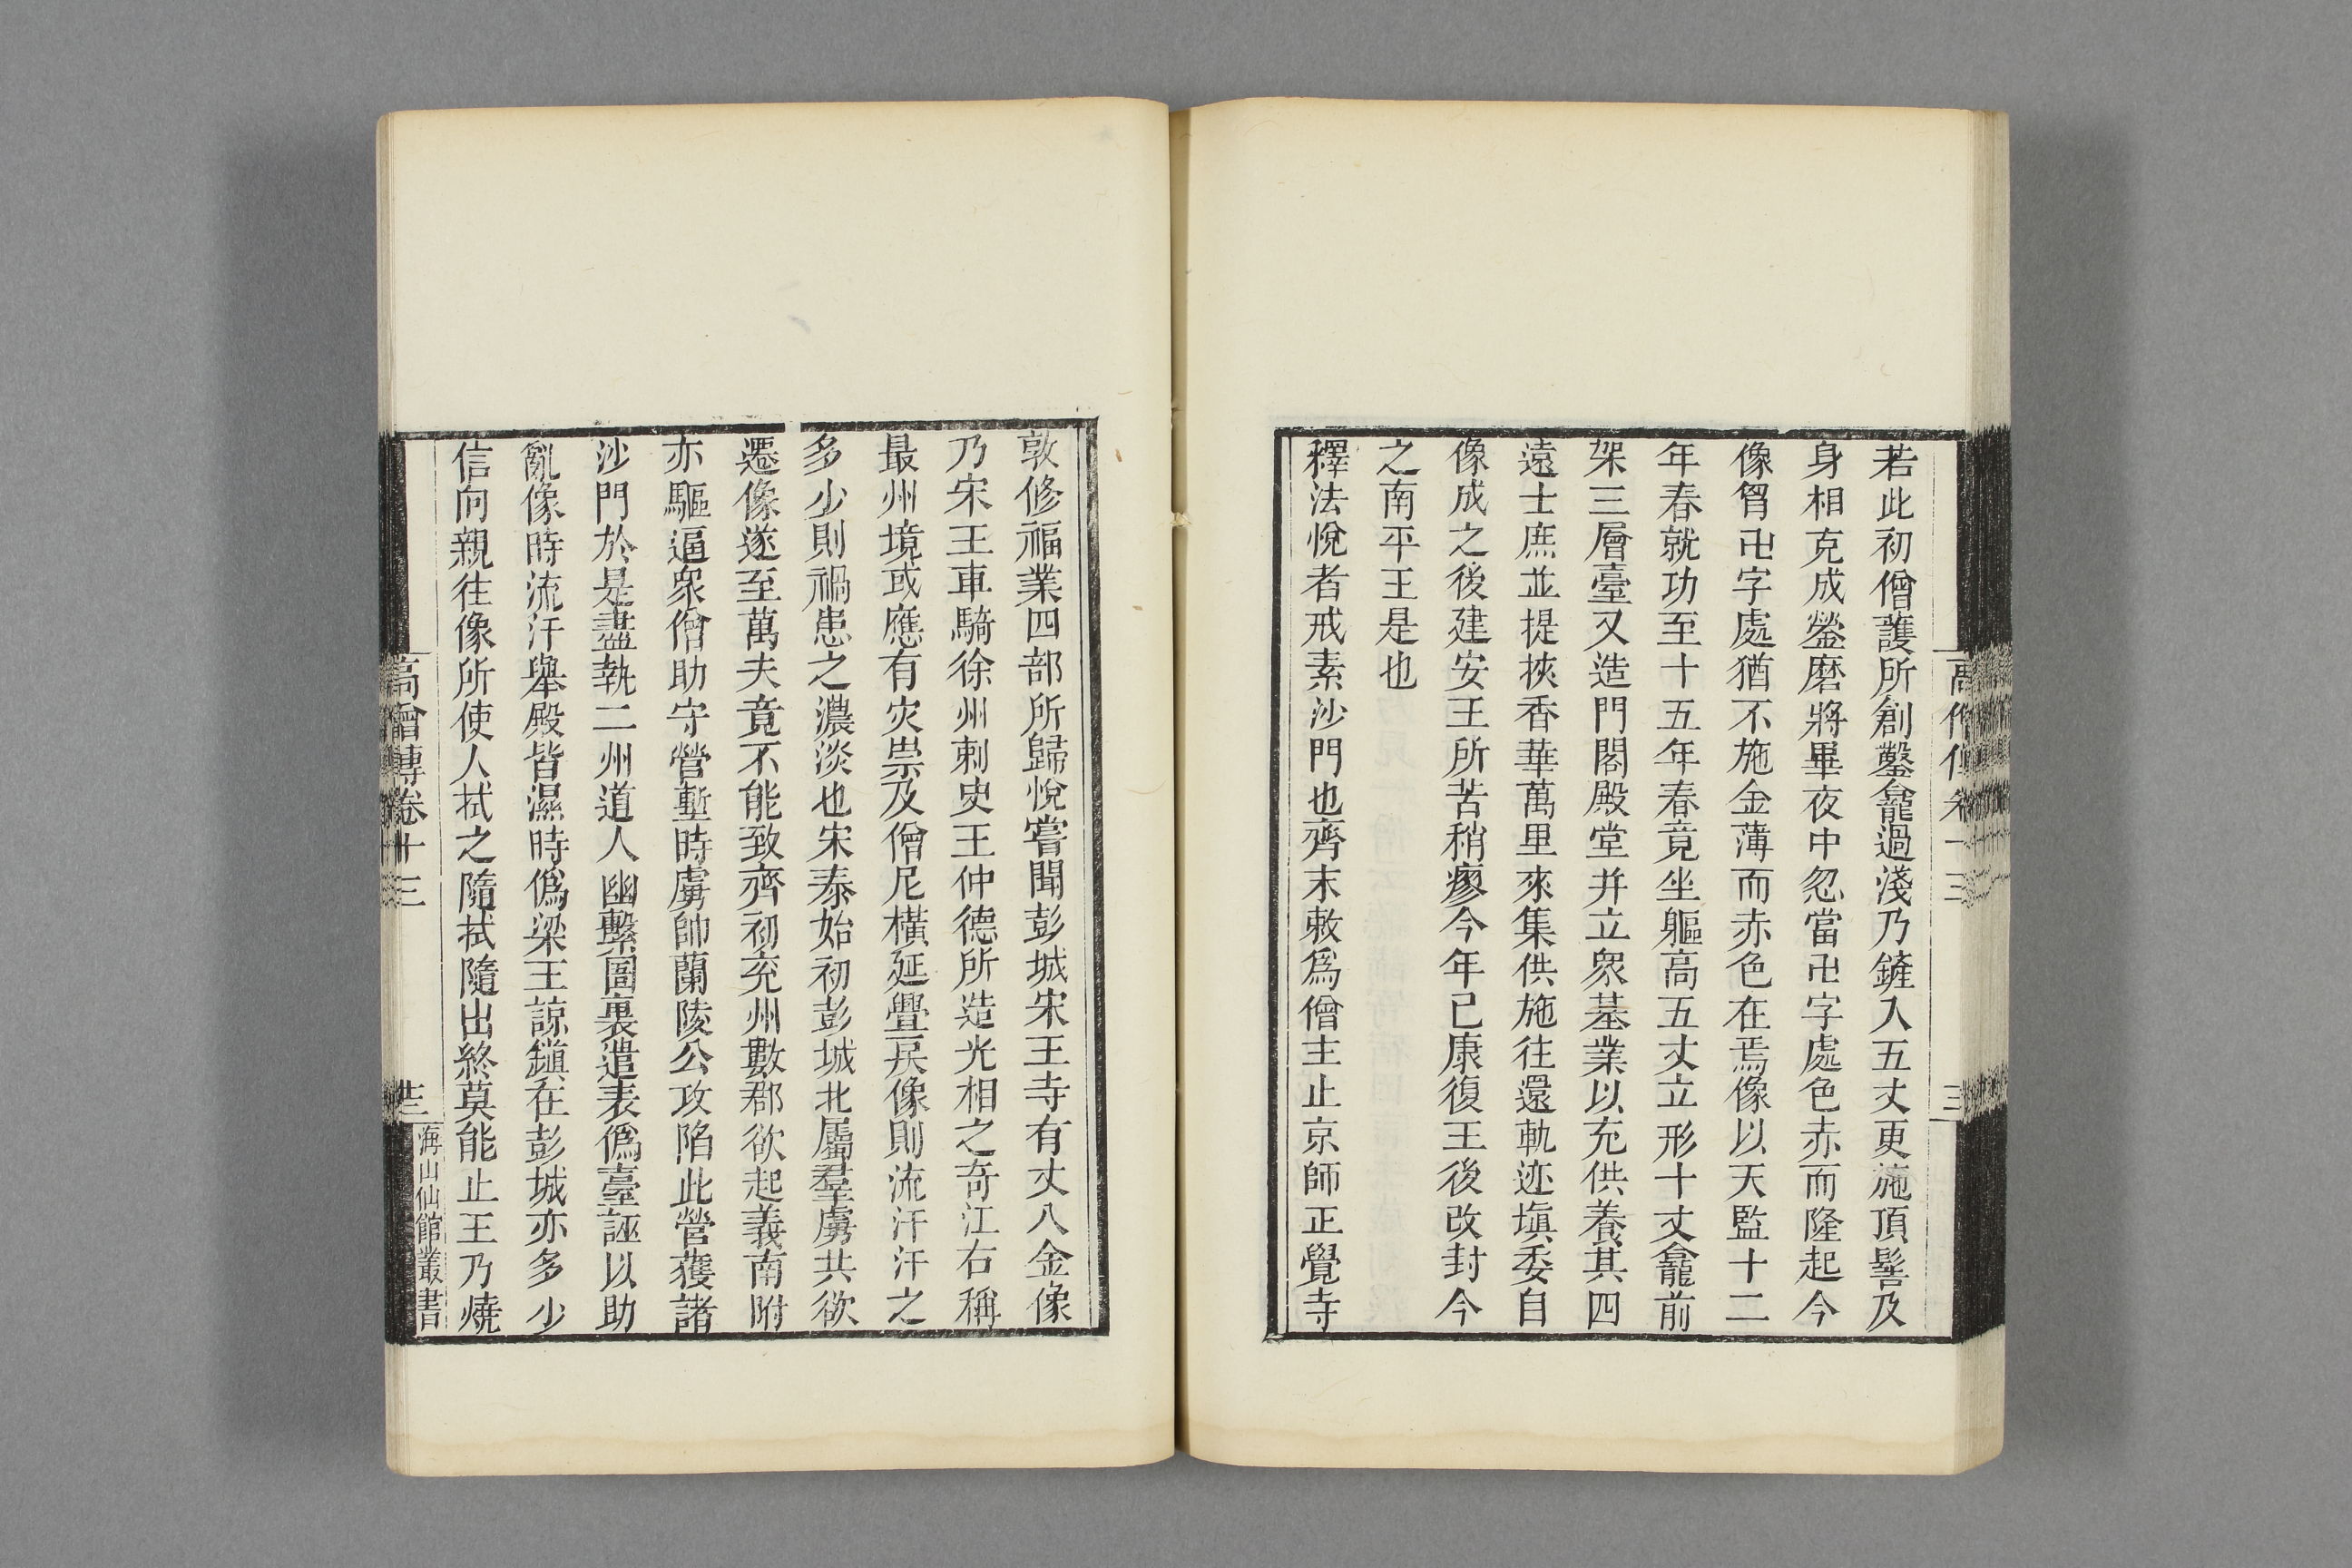 若此初僧護所創鑿龕過淺乃鏟入五丈更施頂髻及
身相克成鎣磨將畢夜中忽當卍字處色赤而隆起今
像胷卍字處猶不施金薄而赤色在焉像以天監十二
年春就功至十五年春竟坐軀高五丈立形十丈龕前
架三層臺又造門閣殿堂并立衆基業以充供養其四
遠士庶並提挾香華萬里來集供施往還軌迹塡委自
像成之後建安王所苦稍瘳今年已康復王後改封今
之南平王是也
釋法悅者戒素沙門也齊末敕爲僧主止京師正覺寺
敦修福業四部所歸悅嘗聞彭城宋王寺有丈八金像
乃宋王車騎徐州刺史王仲德所造光相之奇江右稱
最州境或應有灾祟及僧尼橫延釁戾像則流汗汗之
多少則禍患之濃淡也宋泰始初彭城北屬羣虜共欲
遷像遂至萬夫竟不能致齊初兖州數郡欲起義南附
亦驅逼衆僧助守營塹時虜帥蘭陵公攻陷此營獲諸
沙門於是盡執二州道人幽繫圄裏遣表僞臺誣以助
亂像時流汗舉殿皆濕時僞梁王諒鎭在彭城亦多少
信向親往像所使人拭之隨拭隨出終莫能止王乃燒
高僧傳卷十三
廿三
海山仙館叢書